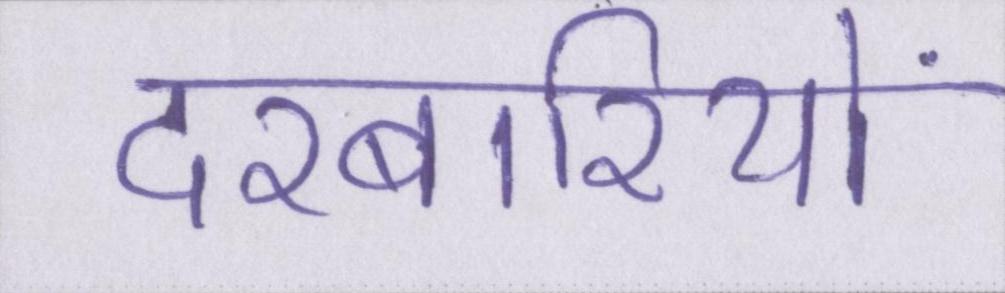 दरबारियों